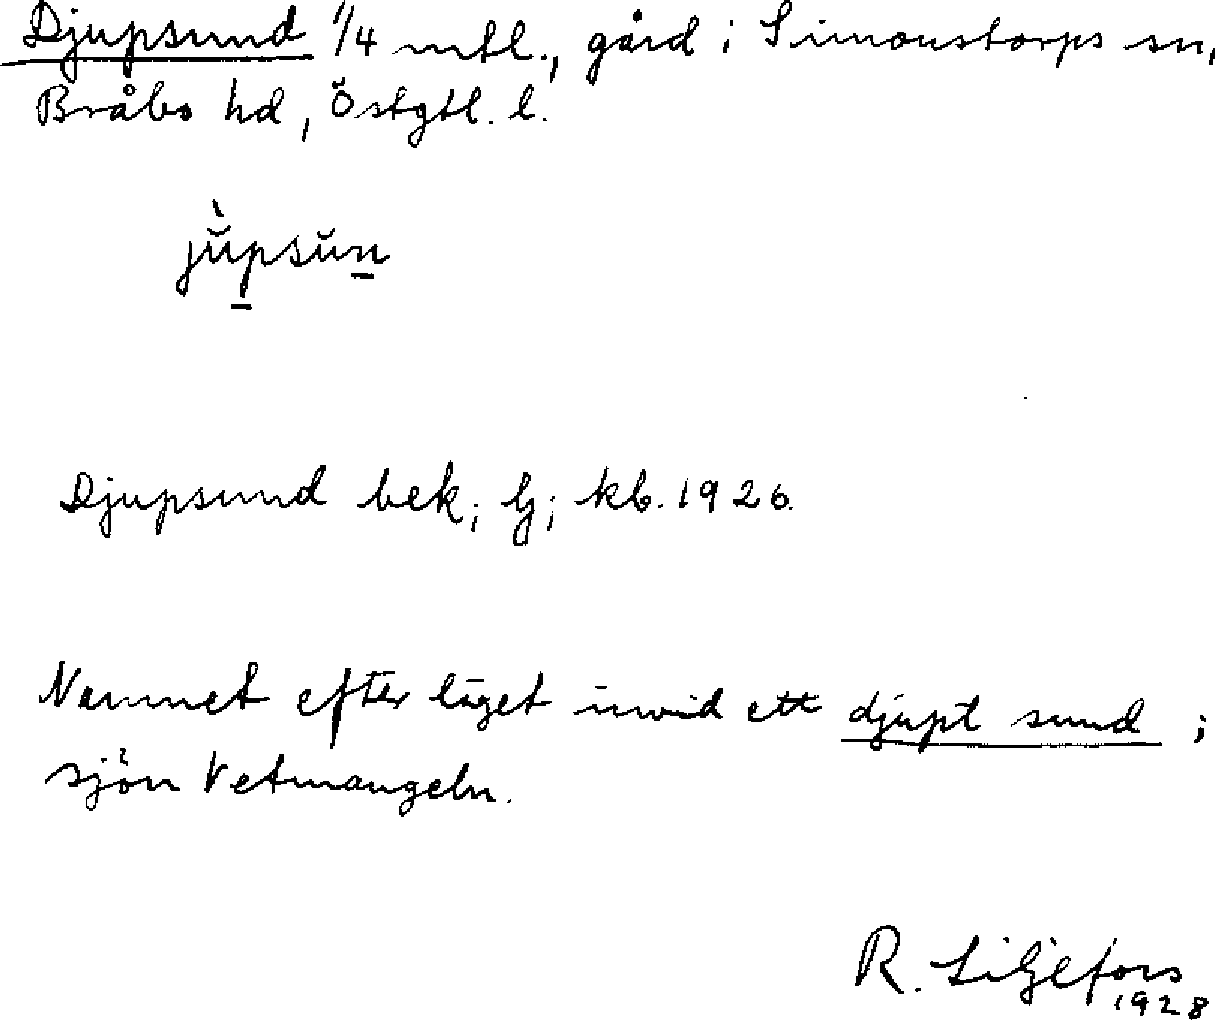 Djupsund 1/4 mtl., gård i Simonstorps sn,
Bråbo hd, Östgtl. l.
jùpsŭn
Djupsund bek; lj; kb. 1926.
Namnet efter läget invid ett djupt sund i
sjön Vetmangeln.
R. Liljefors
1928